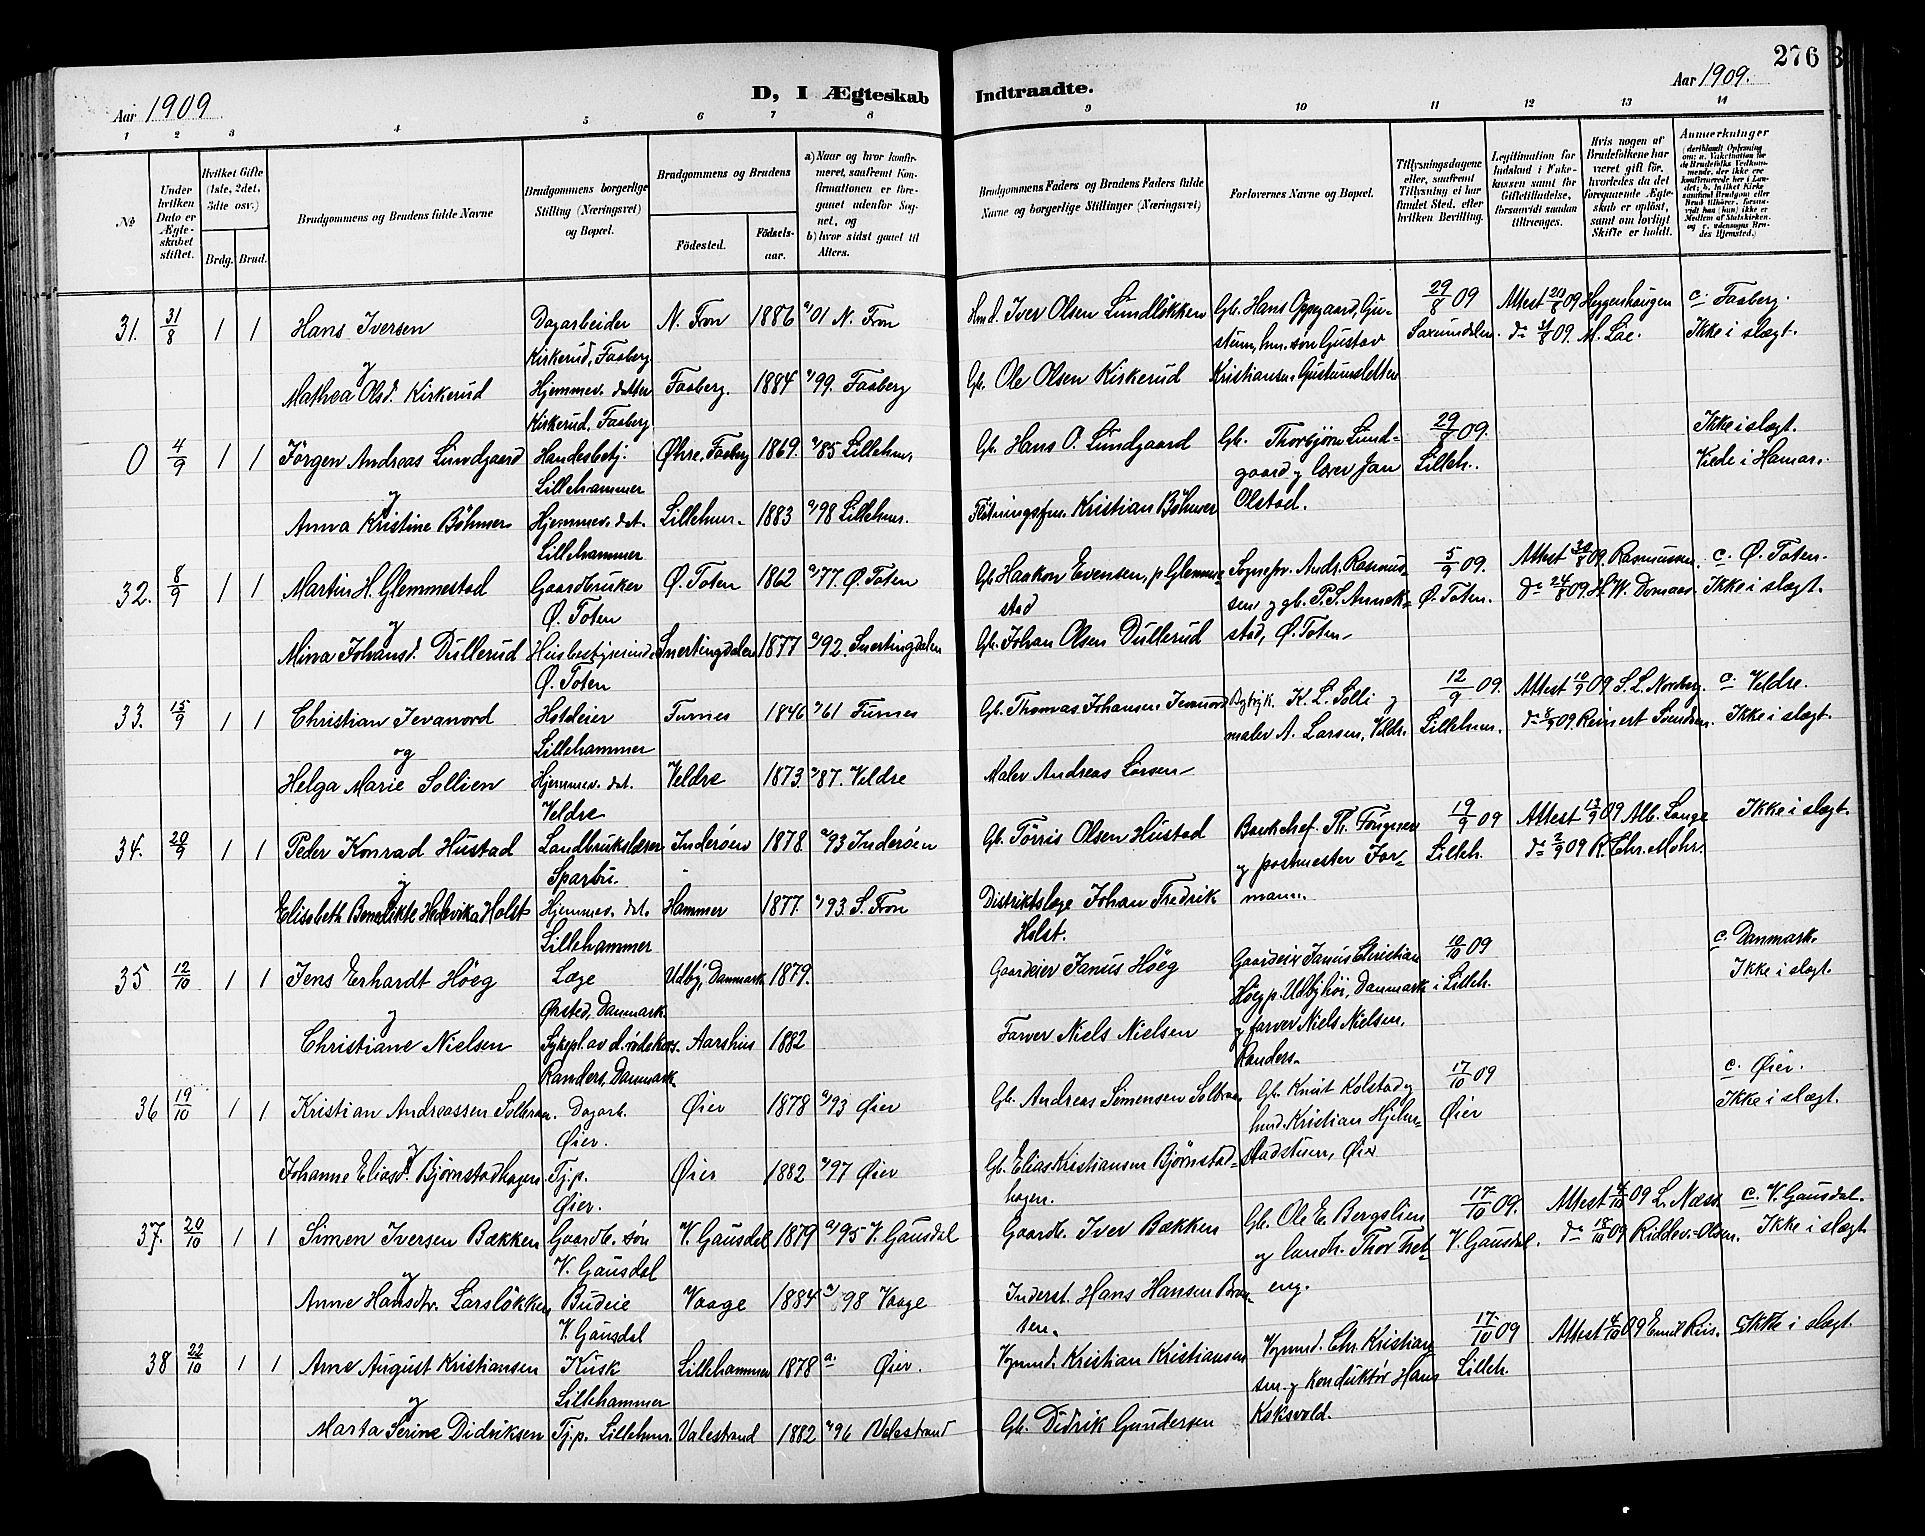 276
Aar 1909
D, I Ægteskab Indtraadte.
Aar 1909.
1 2 3 4 5 6 7 8 9 10 11 12 13 14
No
Under hvilken Dato er Ægteskabet stiftet.
Hvilket Gifte (1ste, 2det, 3die osv.)
Brdg. Brud.
Brudgommens og Brudens fulde Navne
Brudgommens borgerlige Stilling (Næringsvei) og Bopæl.
Brudgommens og Brudens
Födested.
Födsels-aar.
a) Naar og hvor konfirmeret, saafremt Konfirmationen er foregaaet udenfor Sognet, og
b) hvor sidst gaaet til Alters.
Brudgommens Faders og Brudens Faders fulde Navne og borgerlige Stillinger (Næringsvei)
Forlovernes Navne og Bopæl.
Tillysningsdagene eller, saafremt Tillysning ei har fundet Sted, efter hvilken Bevilling.
Legitimation for Indskud i Enkekassen samt for Giftetilladelse, forsaavidt saadan tiltrænges.
Hvis nogen af Brudefolkene har været gift för, hvorledes da det foregaaende Ægteskab er oplöst, samt om lovligt Skifte er holdt.
Anmærkninger
31. 31/8 1 1 Hans Iversen Dagarbeider N. Fron 1886 a/01 N. Fron Hmd. Iver Olsen Lundløkken Gb. Hans Oppgaard, Gu- 29/8 09 Attest 20/8 09 Heggenhaugen c. Faaberg.
Kirkerud, Faaberg stum, hm. søn Gustav Saxumdalen. do 21/8 09. M. Lae. Ikke i slægt.
y
Mathea Olsd. Kirkerud Hjemmev. datter Faaberg. 1884 a/99. Faaberg Gb. Ole Olsen Kirkerud Kristiansen Gustumsletten
Kirkerud, Faaberg
0 4/9 1 1 Jörgen Andreas Lundgaard Handesbetj. Øhre, Faaberg 1869. a/85 Lillehmr. Gb. Hans O. Lundgaard Gb. Thorbjørn Lund- 29/8 09. Ikke i slægt.
Lillehammer gaard y lærer Jan Lilleh. Viede i Hamar.
y
Anna Kristine Böhmer Hjemmev. dat. Lillehmr. 1883 a/98 Lillehmr. Fløtningsfm. Kristian Böhmer Olstad.
Lillehammer
32. 8/9 1 1 Martin H. Glemmestad Gaardbruker Ø. Toten 1862 a/77. Ø. Toten Gb. Haakon Evensen, p Glemme- Sognepr. Andr. Rasmus- 5/9 09. Attest 30/8 09. Rasmussen c. Ø. Toten.
Ø. Toten stad sen y gb. P. S. Annek- Ø. Toten. do 24/8 09. H. W. Domaas. Ikke i slægt.
y
Mina Johansd. Dullerud Husbestyrerinde Snertingdalen 1877 a/92. Snertingdalen Gb. Johan Olsen Dullerud stad, Ø. Toten
Ø. Toten
33. 15/9 1 1 Christian Jevanord Hoteleier Furnes 1846 a/61 Furnes Gb. Thomas Johansen Jevanord Bytryk. K. L. Solli y 12/9 09. Attest 10/9 09 S. L. Norberg. c. Veldre.
Lillehammer maler A. Larsen, Veldr. Lillehmr. do 8/9 09 Reinert Svendsen. Ikke i slægt.
og
Helga Marie Sollien Hjemmev. dat. Veldre 1873. a/87. Veldre Maler Andreas Larsen
Veldre
34. 20/9 1 1 Peder Konrad Hustad Landbrukslærer Inderøen 1878 a/93 Inderøen Gb. Törris Olsen Hustad Bankchef. Th. Fougner 19/9 09 Attest 13/9 09 Alb. Lange Ikke i slægt.
Sparbu. y postmester For- Lilleh. do 2/9 09 R. Chr. Mohr.
y
Elisabeth Benedikte Hedevika Holst Hjemmev. dat. Hammer 1877. a/93. S. Fron Distriktslæge Johan Fredrik man.
Lillehammer Holst.
35 12/10 1 1 Jens Erhardt Höeg Læge Udby, Danmark 1879. Gaardeier Janus Höeg Gaardeier Janus Christian 10/10 09 c. Danmark.
Ørsted, Danmark. Höeg p. Udbyhöi, Danmark i Lilleh. Ikke i slægt.
y
Christiane Nielsen Sykepl. av d. røde kors. Aarhus 1882 Farver Niels Nielsen y farver Niels Nielsen,
Randers, Danmark. Randers.
36 19/10 1 1 Kristian Andreassen Solbraa Dagarb. Øier 1878 a/93 Øier Gb. Andreas Simensen Solbraa Gb. Knut Kolstad y 17/10 09 c. Øier.
Øier. hmd. Kristian Hjelm- Øier Ikke i slægt.
y
Johanne Eliasd. Bjørnstadhagen Tj.p. Øier 1882 a/97 Øier Gb. Elias Kristiansen Bjørnstad- stadstuen, Øier
Øier. hagen.
37. 20/10 1 1 Simen Iversen Bækken Gaardb. søn V. Gausdal 1879 a/95 V. Gausdal Gaardb. Iver Bækken Gb. Ole E. Bergslien 17/10 09. Attest 4/10 09 L. Næss. c. V. Gausdal.
V. Gausdal y landh. Thor Tret- V. Gausdal. do 18/10 09 Ridder-Olsen. Ikke i slægt.
y
Anne Hansdtr. Larsløkken Budeie Vaage 1884 a/98 Vaage Inderst. Hans Hansen eng.
V. Gausdal
38 22/10 1 1 Arne August Kristiansen Kusk Lillehammer 1878 a. Øier. Vognmd. Kristian Kristiansen Vognmd. Chr. Kristian- 17/10 09 Attest 4/10 09 Emil Riis. Ikke i slægt.
Lillehammer sen y Konduktør Hans Lilleh.
og
Marta Serine Didriksen Tj.p. Lillehmr. Valestrand 1882 a/96 Valestrand Gb. Didrik Gundersen Koksvold.